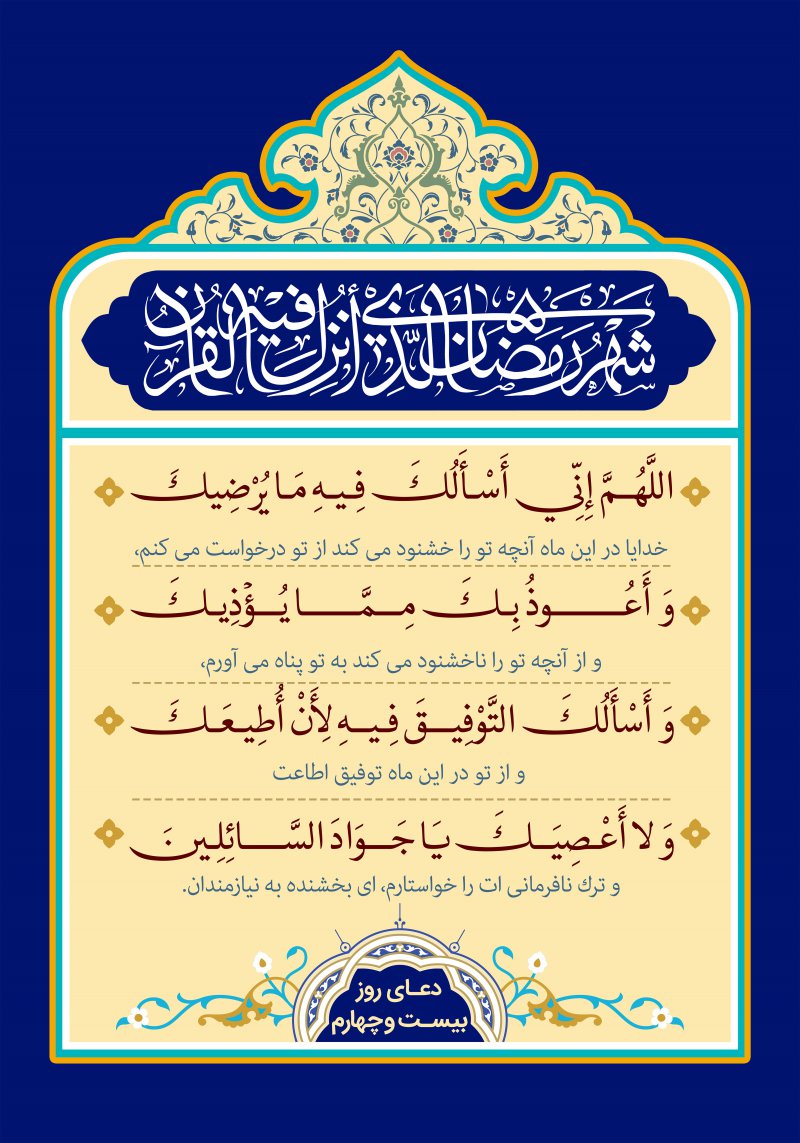 شَهْرُ رَمَضَانَ الَّذِي أُنْزِلَ فِيهِ الْقُرْآنُ
اللَّهُمَّ إِنِّي أَسْأَلُكَ فِيهِ مَا يُرْضِيكَ
خدایا در این ماه آنچه تو را خشنود می کند از تو درخواست می کنم،
وَ أَعُوذُ بِكَ مِمَّا يُؤْذِيكَ
و از آنچه تو را ناخشنود می کند به تو پناه می آورم،
وَ أَسْأَلُكَ التَّوْفِيقَ فِيهِ لِأَنْ أُطِيعَكَ
و از تو در این ماه توفیق اطاعت
وَ لا أَعْصِيَكَ يَا جَوَادَ السَّائِلِينَ
و ترك نافرمانی ات را خواستارم، ای بخشنده به نیازمندان.
دعای روز
بیست وچهارم